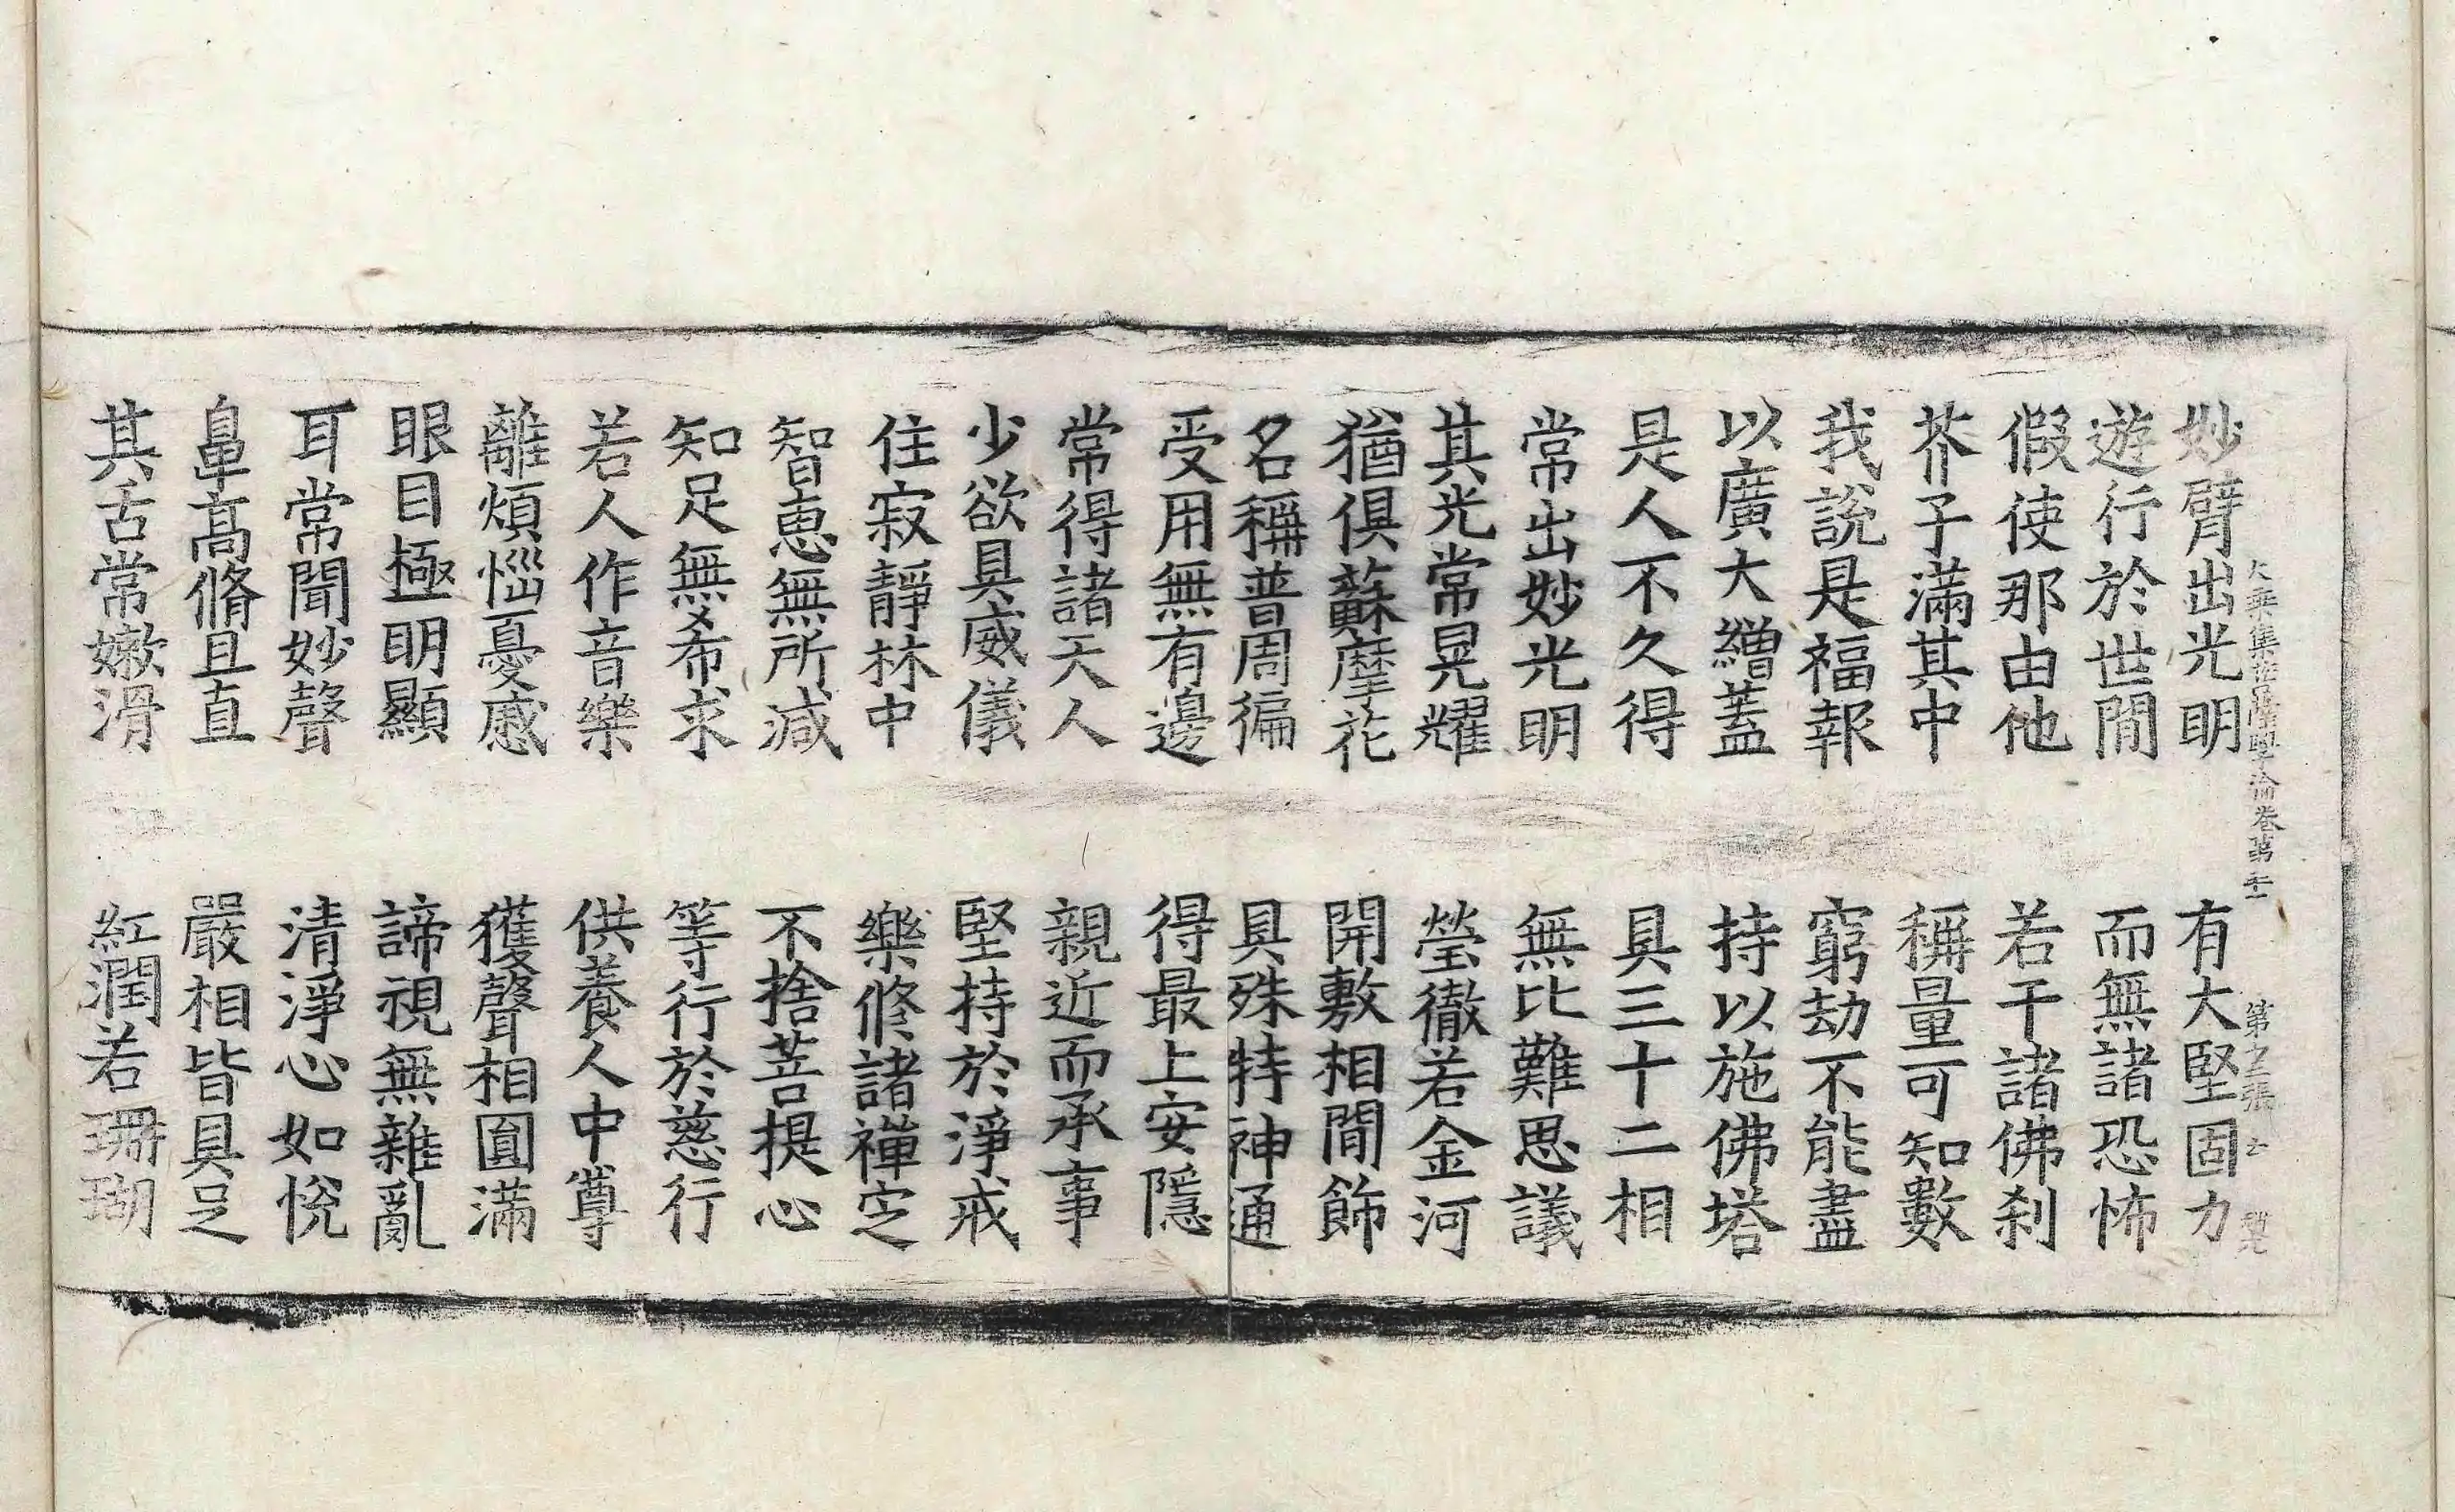 大乘集菩薩學論卷第十二 第五張 云
妙臂出光明 有大堅固力
遊行於世間 而無諸恐怖
假使那由他 若干諸佛刹
芥子滿其中 稱量可知數
我說是福報 窮劫不能盡
以廣大繒蓋 持以施佛塔
是人不久得 具三十二相
常出妙光明 無比難思議
其光常晃耀 瑩徹若金河
猶俱蘇摩花 開敷相間飾
名稱普周徧 具殊特神通
受用無有邊 得最上安隱
常得諸天人 親近而承事
少欲具威儀 堅持於淨戒
住寂靜林中 樂修諸禪定
智恵無所減 不捨菩提心
知足無希求 等行於慈行
若人作音樂 供養人中尊
離煩惱憂慼 獲聲相圓滿
眼目極明顯 諦視無雜亂
耳常聞妙聲 清淨心如悅
鼻高脩且直 嚴相皆具足
其舌常嫩滑 紅潤若珊瑚